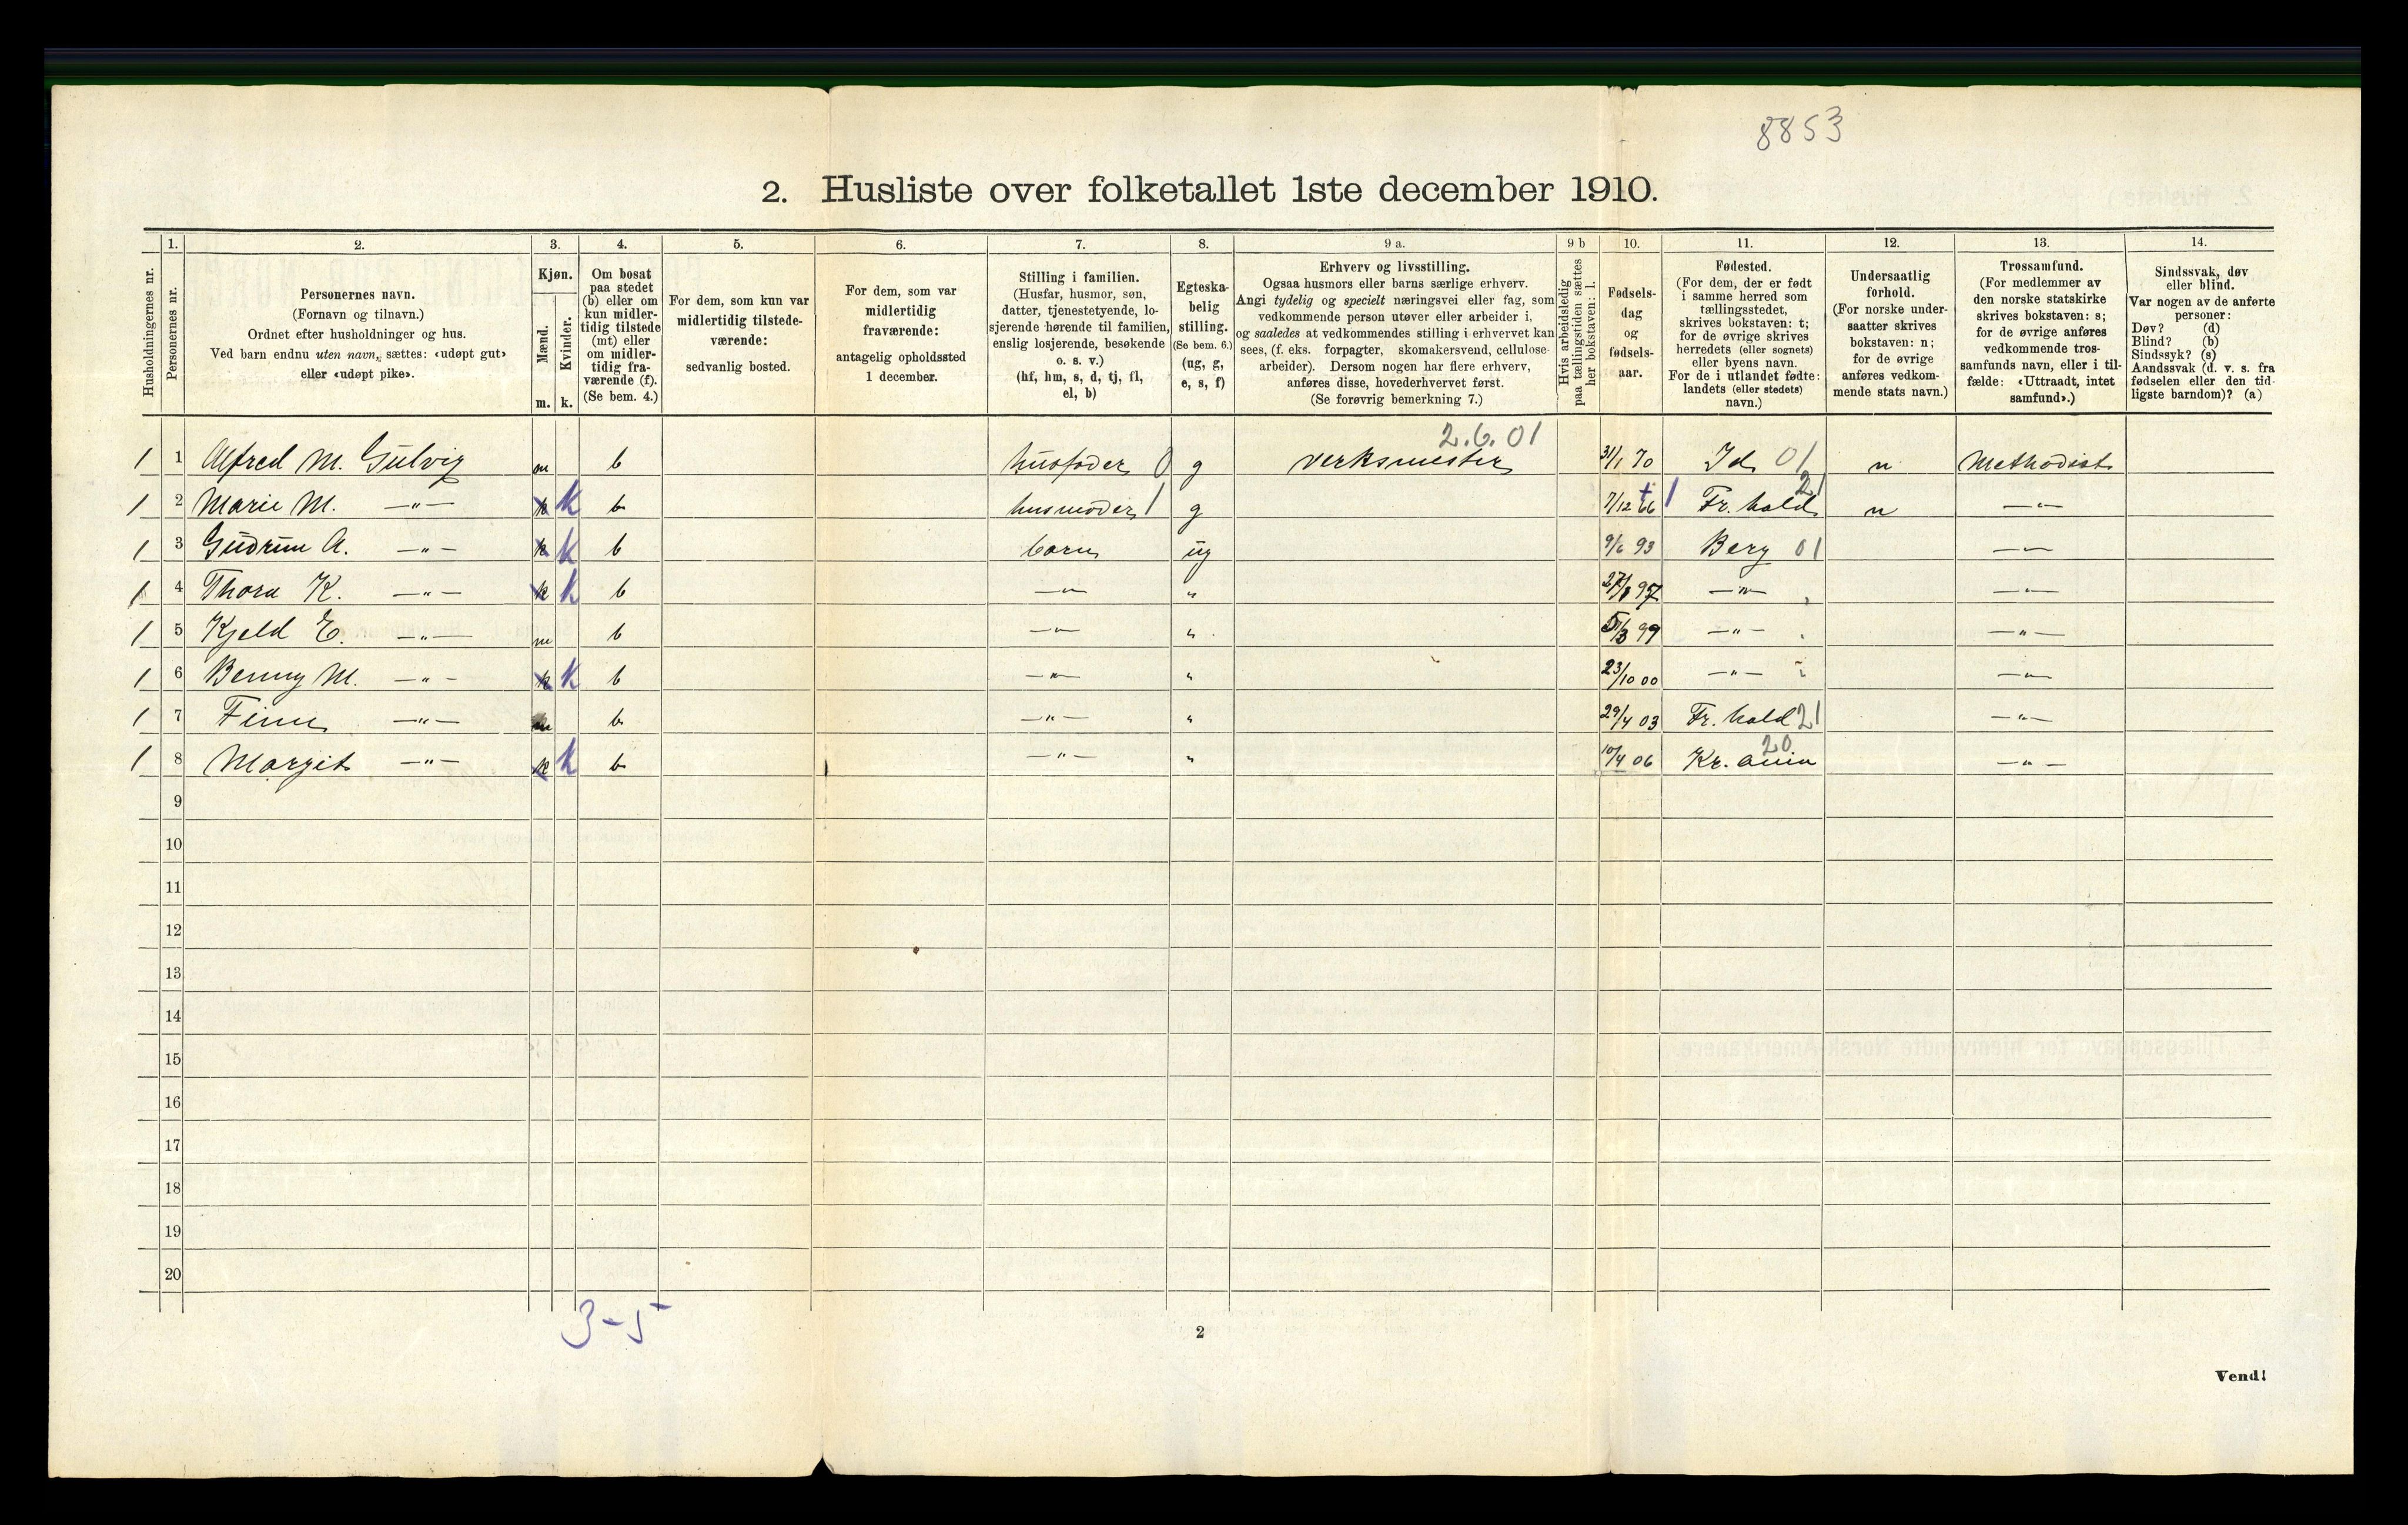 8853
2. Husliste over folketallet 1ste december 1910.
Husholdningernes nr.
1. Personernes nr.
2. Personernes navn.
(Fornavn og tilnavn.)
Ordnet efter husholdninger og hus.
Ved barn endnu uten navn, sættes: «udøpt gut»
eller «udøpt pike».
3. Kjøn.
Mænd. m.
Kvinder. k.
4. Om bosat
paa stedet
(b) eller om
kun midler-
tidig tilstede
(mt) eller
om midler-
tidig fra-
værende (f).
(Se bem. 4.)
5. For dem, som kun var
midlertidig tilstede-
værende:
sedvanlig bosted.
6. For dem, som var
midlertidig
fraværende:
antagelig opholdssted
1 december.
7. Stilling i familien.
(Husfar, husmor, søn,
datter, tjenestetyende, lo-
sjerende hørende til familien,
enslig losjerende, besøkende
o. s. v.)
(hf, hm, s, d, tj, fl,
el, b)
8. Egteska-
belig
stilling.
(Se bem. 6.)
(ug, g,
e, s, f)
9 a. Erhverv og livsstilling.
Ogsaa husmors eller barns særlige erhverv.
Angi tydelig og specielt næringsvei eller fag, som
vedkommende person utøver eller arbeider i,
og saaledes at vedkommendes stilling i erhvervet kan
sees, (f. eks. forpagter, skomakersvend, cellulose-
arbeider). Dersom nogen har flere erhverv,
anføres disse, hovederhvervet først.
(Se forøvrig bemerkning 7.)
9 b Hvis arbeidsledig
paa tællingstiden sættes
her bokstaven: l.
10. Fødsels-
dag
og
fødsels-
aar.
11. Fødested.
(For dem, der er født
i samme herred som
tællingsstedet,
skrives bokstaven: t;
for de øvrige skrives
herredets (eller sognets)
eller byens navn.
For de i utlandet fødte:
landets (eller stedets)
navn.)
12. Undersaatlig
forhold.
(For norske under-
saatter skrives
bokstaven: n;
for de øvrige
anføres vedkom-
mende stats navn.)
13. Trossamfund.
(For medlemmer av
den norske statskirke
skrives bokstaven: s;
for de øvrige anføres
vedkommende tros-
samfunds navn, eller i til-
fælde: «Uttraadt, intet
samfund».)
14. Sindssvak, døv
eller blind.
Var nogen av de anførte
personer:
Døv? (d)
Blind? (b)
Sindssyk? (s)
Aandssvak (d. v. s. fra
fødselen eller den tid-
ligste barndom)? (a)
2.6.01
1 1 Alfred M. Gulvig m b husfader 0 g verksmester 31/1 70 Id 01 n Methodist
1 2 Marie M. —"— k k b husmoder 1 g 7/12 66 1 Fr. hald 21 n —"—
1 3 Gudrun A. —"— k k b barn ug 9/6 93 Berg 01 —"—
1 4 Thora K. —"— k k b —"— " 27/8 97 —"— —"—
1 5 Kjeld E. —"— m b —"— " 5/3 99 —"— —"—
1 6 Benny M. —"— k k b —"— " 23/10 00 —"— —"—
1 7 Finn —"— m b —"— " 29/4 03 Fr. hald 21 —"—
1 8 Margit —"— k k b —"— " 10/4 06 Kr. ania 20 —"—
9
10
11
12
13
14
15
16
17
18
19
20
3-5
2
Vend!